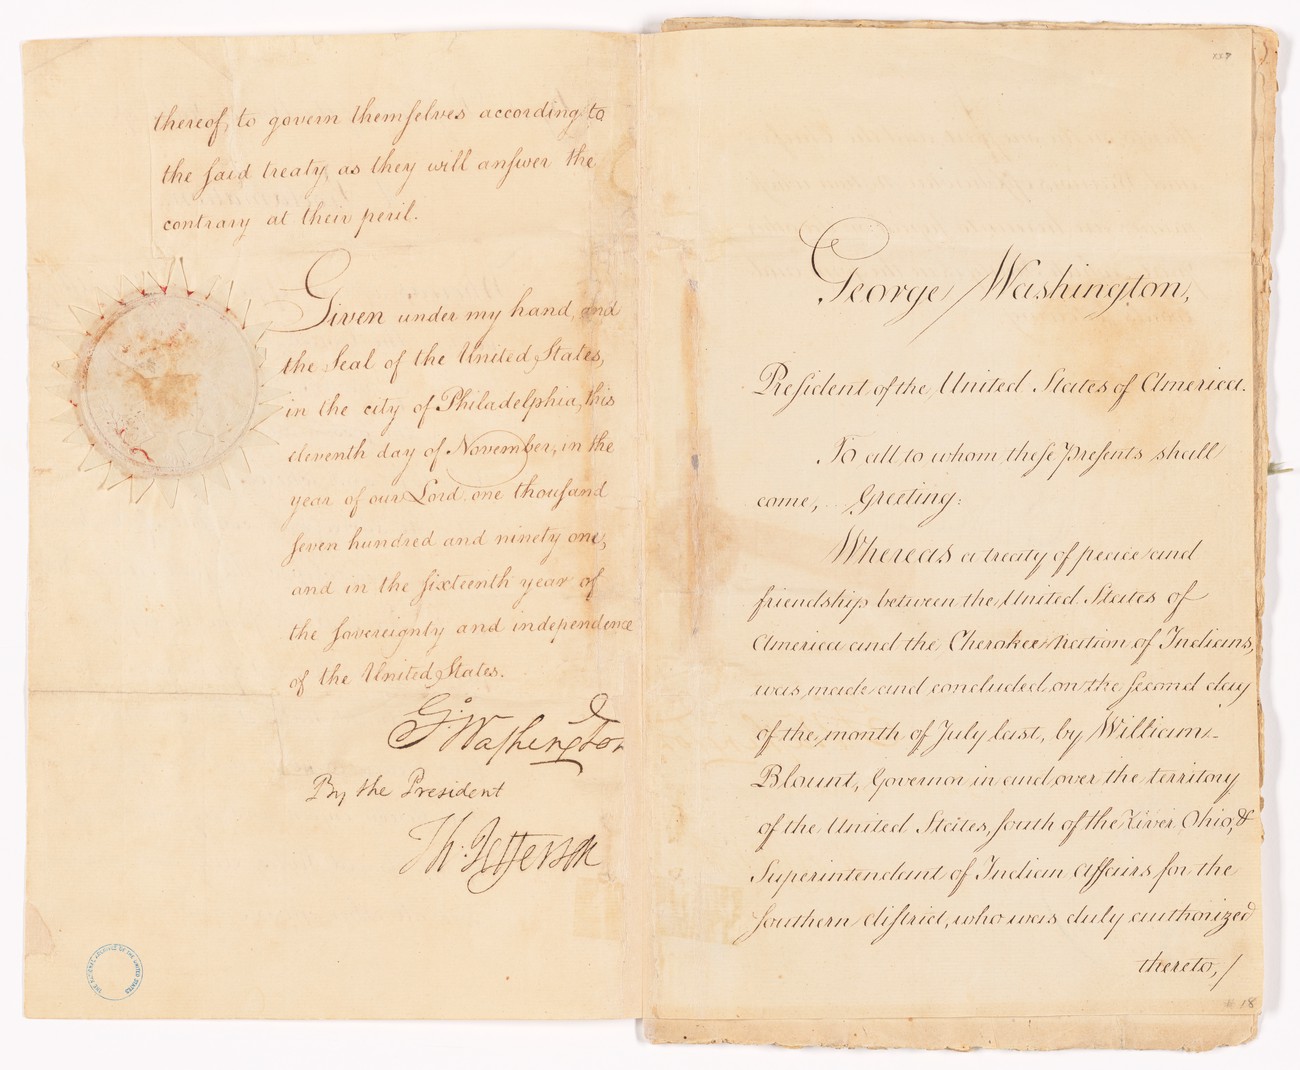 thereof, to govern themselves according to
the said treaty, as they will answer the
contrary at their peril.
Given under my hand, and
the Seal of the United States,
in the city of Philadelphia, this
eleventh day of November, in the
year of our Lord one thousand
seven hundred and ninety one,
and in the sixteenth year of
the sovereignty and independence
of the United States.
Go: Washington
By the President
Th: Jefferson
THE NATIONAL ARCHIVES OF THE UNITED STATES
George Washington,
President of the United States of America.
To all to whom these presents shall
come, Greeting:
Whereas a treaty of peace and
friendship between the United States of
America and the Cherokee nation of Indians,
was made and concluded on the second day
of the month of July last, by William
Blount, Governor in and over the territory
of the United States, south of the River Ohio, &
Superintendant of Indian affairs for the
southern district, who was duly authorized
thereto, /
# 18